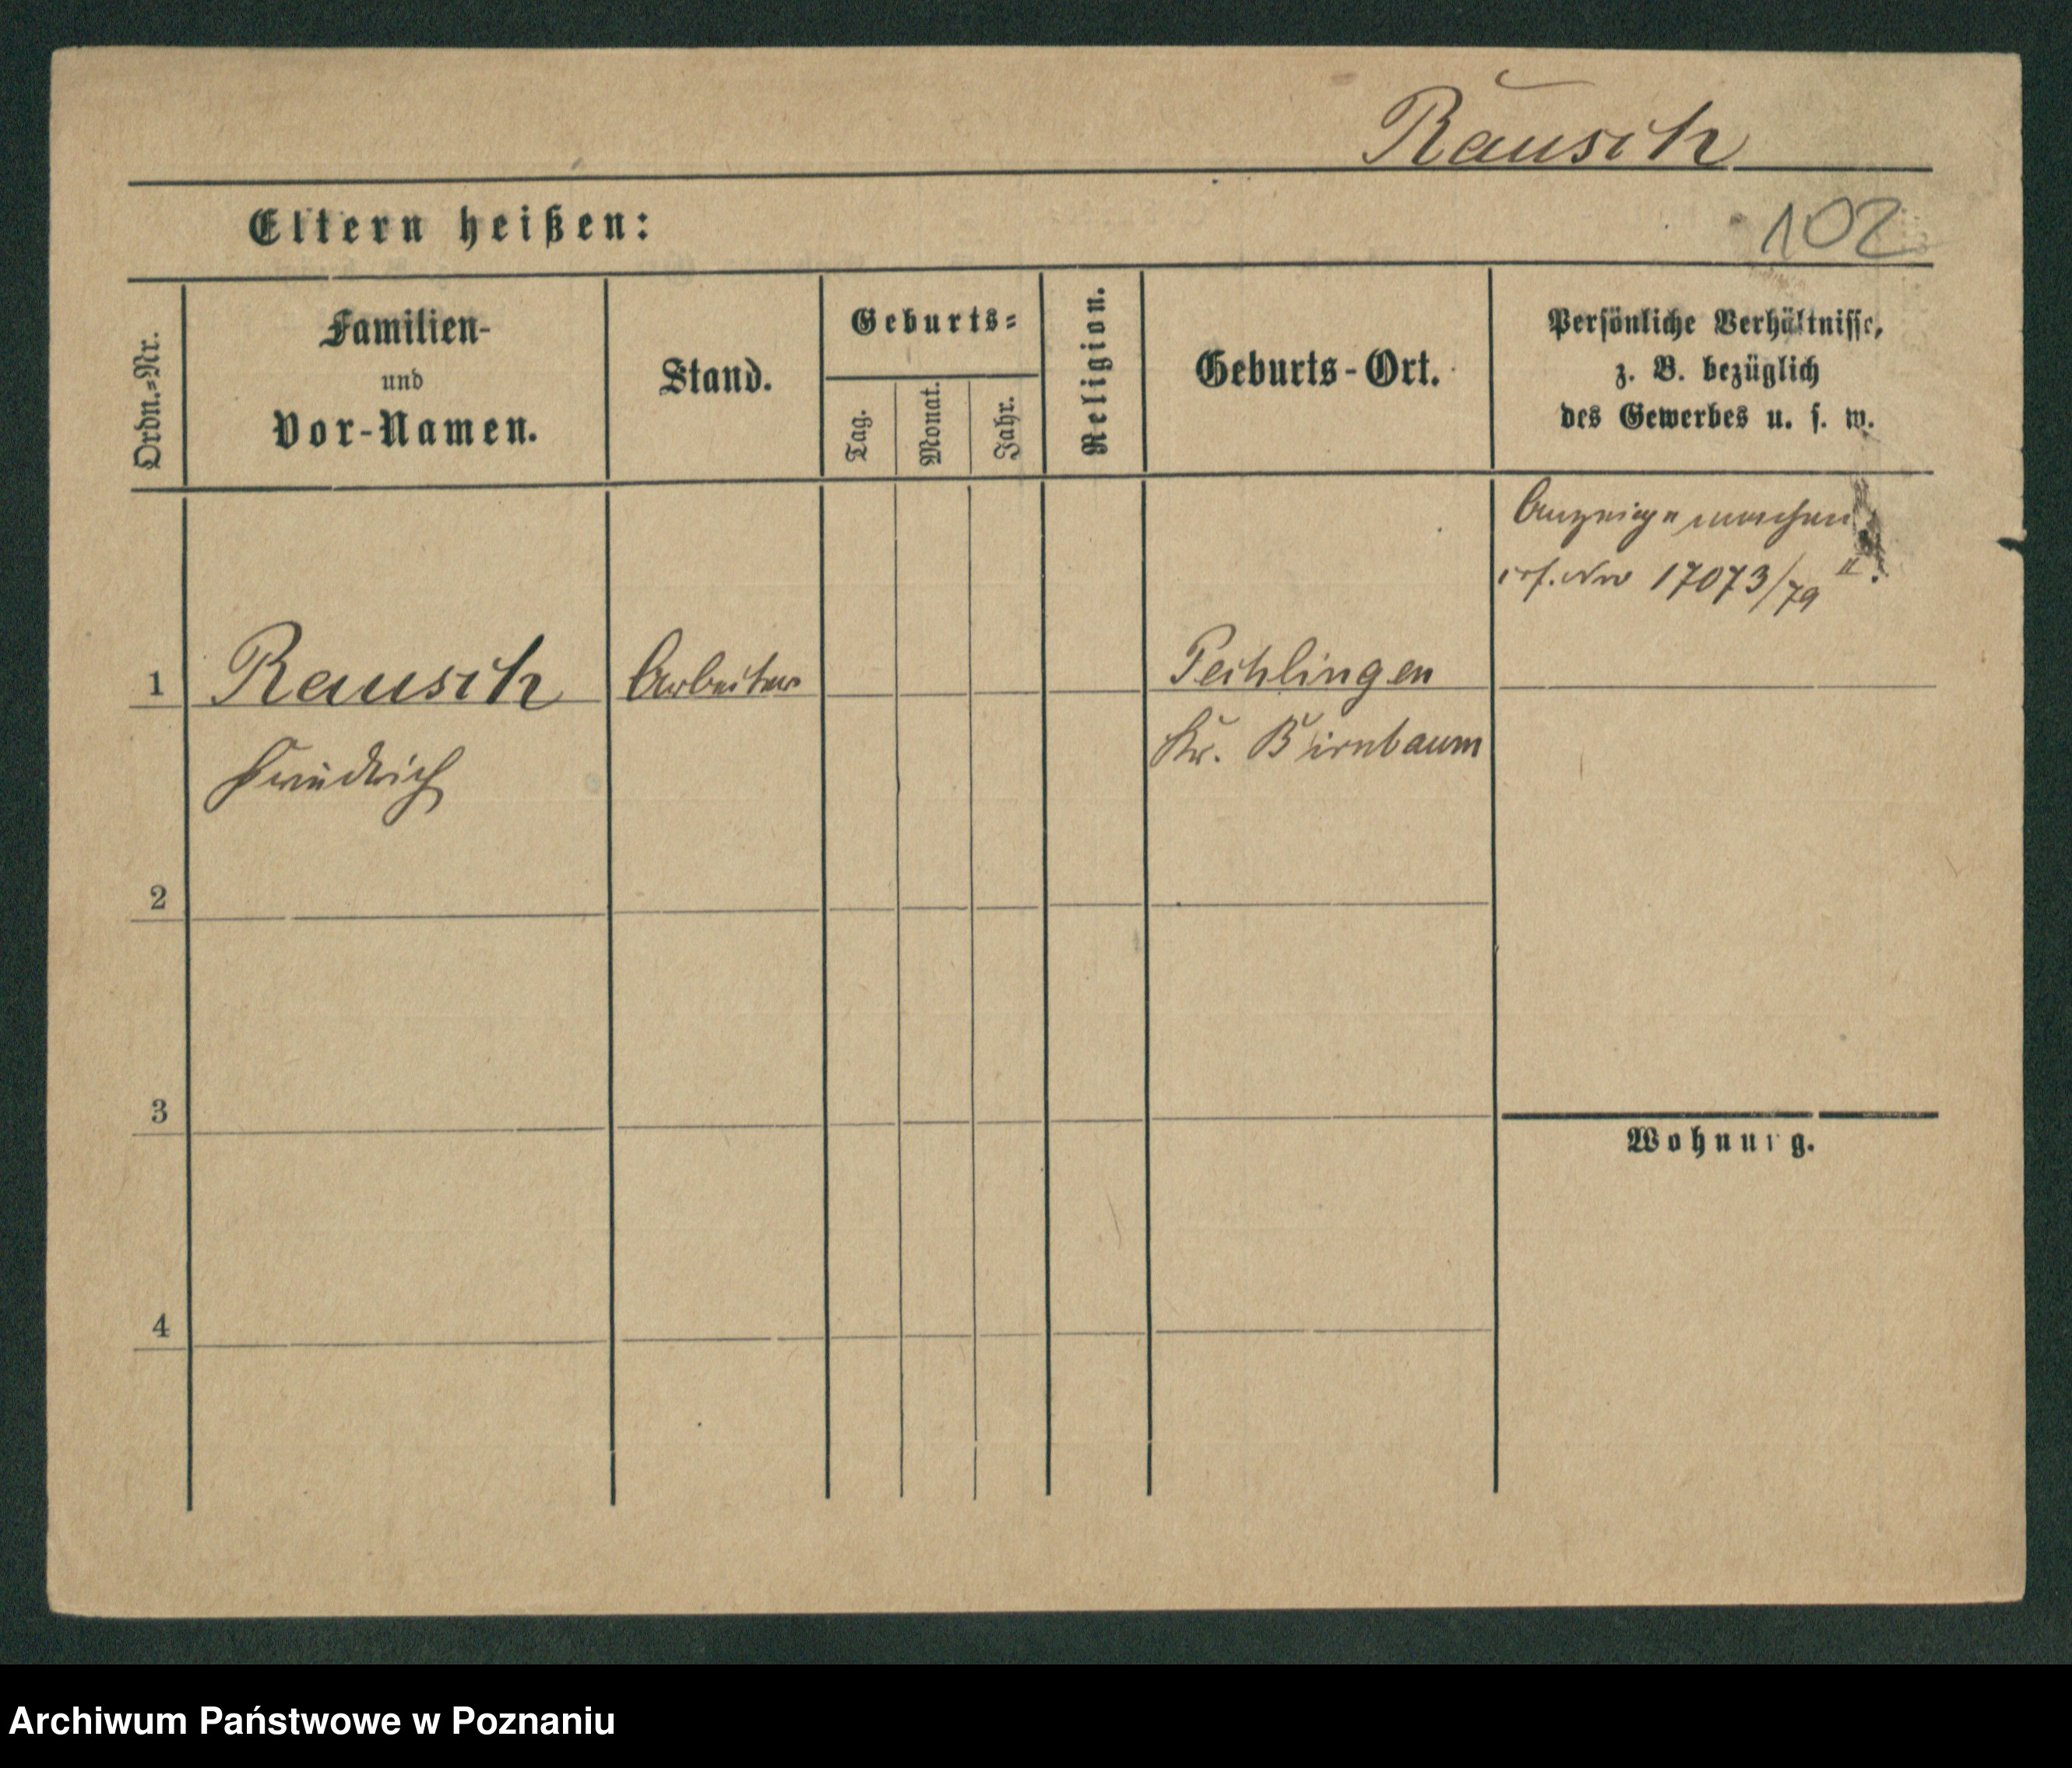 Rausch
Eltern heißen:
102
Ordn.=Nr.
Familien-
und
Vor-Namen.
Stand.
Geburts=
Tag.
Monat.
Jahr.
Religion.
Geburts-Ort.
Persönliche Verhältnisse,
z. B. bezüglich
des Gewerbes u. s. w.
Anzeige machen
17073/79 II.
1
Rausch
Arbeiter
Pechlingen
Friedrich
Kr. Birnbaum
2
3
Wohnung.
4
Archiwum Państwowe w Poznaniu